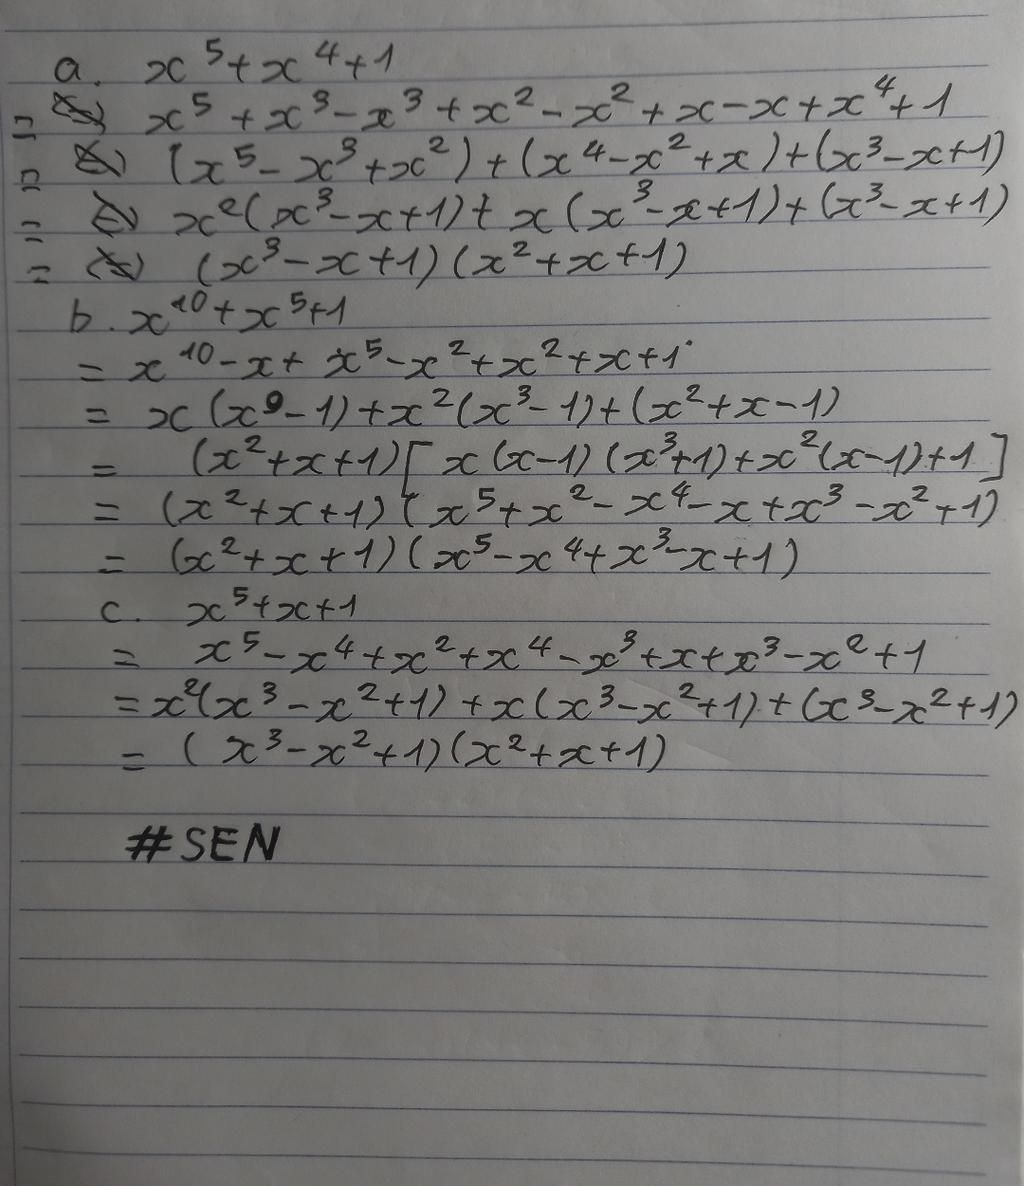 a. x⁵+x⁴+1
= x⁵+x³-x³+x²-x²+x-x+x⁴+1
= (x⁵-x³+x²)+(x⁴-x²+x)+(x³-x+1)
= x²(x³-x+1)+x(x³-x+1)+(x³-x+1)
= (x³-x+1)(x²+x+1)
b. x¹⁰+x⁵+1
= x¹⁰-x+x⁵-x²+x²+x+1
= x(x⁹-1)+x²(x³-1)+(x²+x-1)
= (x²+x+1)[x(x-1)(x³+1)+x²(x-1)+1]
= (x²+x+1)(x⁵+x²-x⁴-x+x³-x²+1)
= (x²+x+1)(x⁵-x⁴+x³-x+1)
c. x⁵+x+1
= x⁵-x⁴+x²+x⁴-x³+x+x³-x²+1
= x²(x³-x²+1)+x(x³-x²+1)+(x³-x²+1)
= (x³-x²+1)(x²+x+1)
#SEN